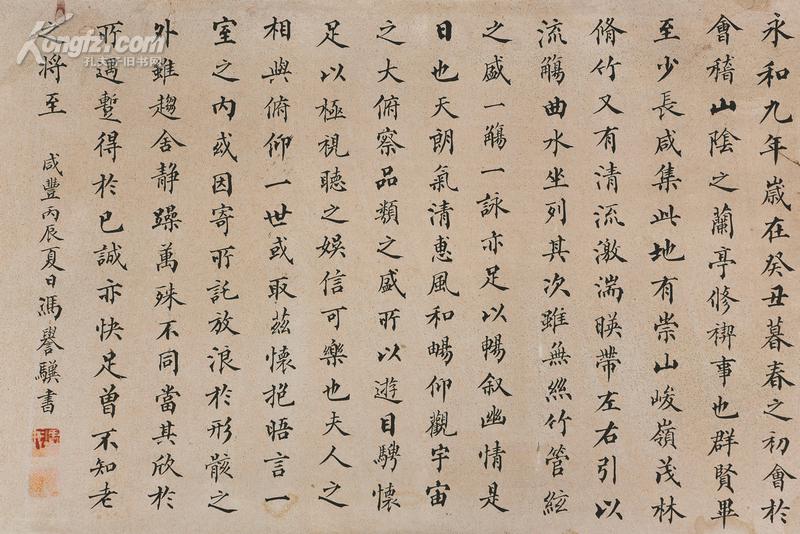 永和九年歲在癸丑暮春之初會於
會稽山陰之蘭亭修禊事也群賢畢
至少長咸集此地有崇山峻嶺茂林
脩竹又有清流激湍暎帶左右引以
流觴曲水坐列其次雖無絲竹管絃
之盛一觴一詠亦足以暢叙幽情是
日也天朗氣清惠風和暢仰觀宇宙
之大俯察品類之盛所以遊目騁懷
足以極視聽之娛信可樂也夫人之
相與俯仰一世或取茲懷抱晤言一
室之內或因寄所託放浪於形骸之
外雖趨舍静躁萬殊不同當其欣於
所遇暫得於已誠亦快足曾不知老
之將至 咸豐丙辰夏日馮譽驥書
Kongfz.com
孔夫子旧书网